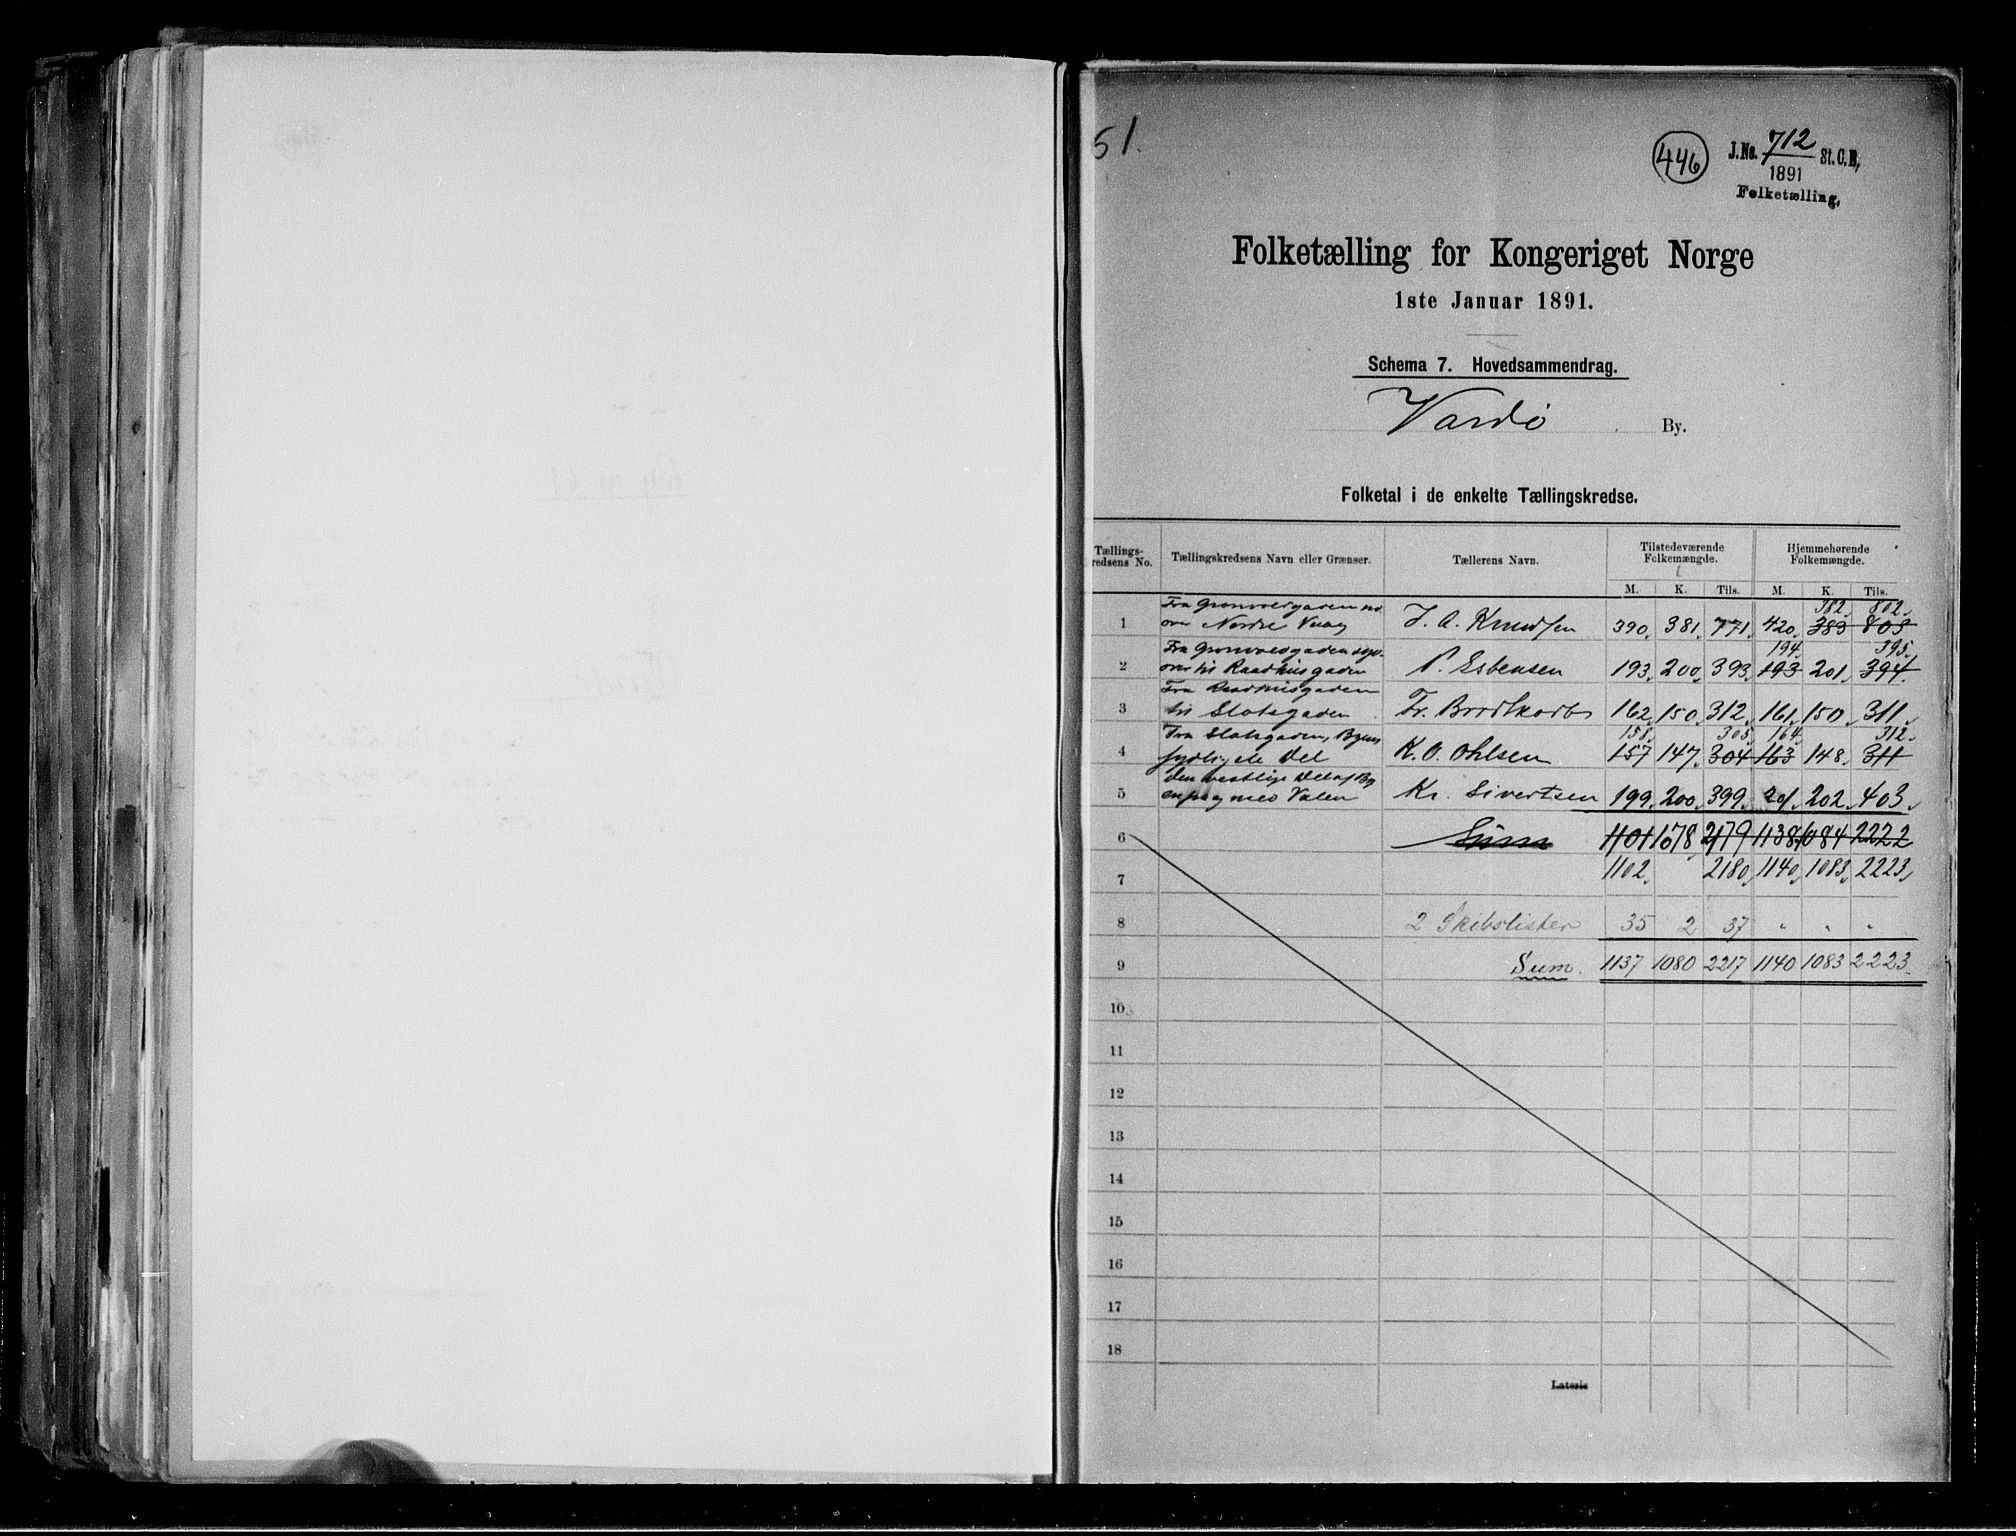 51.
446
J.No. 712 St.C.B.
1891
Folketælling.
Folketælling for Kongeriget Norge
1ste Januar 1891.
Schema 7. Hovedsammendrag.
Vardö By.
Folketal i de enkelte Tællingskredse.
Tællings-
redsens No.
Tællingskredsens Navn eller Grænser.
Tællerens Navn.
Tilstedeværende
Folkemængde.
Hjemmehørende
Folkemængde.
M. K. Tils. M. K. Tils.
382. 802.
1 Fra Grønvoldgaden
over Nordre Vaag J. A. Knudsen 390. 381. 771. 420. 383 803
194. 395.
2 Fra Gronvoldgaden
over til Raadhusgaden P. Esbensen 193. 200. 393. 193 201. 394.
3 Fra Raadhusgaden
til Slotsgaden Fr. Brodtkorb 162. 150. 312. 161. 150. 311.
158. 305. 164. 312.
4 Fra Slotsgaden, Byens
sydligste Del K. O. Ohlsen 157 147. 304 163 148. 311
5 Den vestlige Del af By
en paa med Valen Kr. Sivertsen 199. 200. 399. 201. 202. 403.
6 Sum 1101 1078 2179 1138 1084 2222
7 1102. 2180. 1140. 1083. 2223.
8 2 Skibslister 35 2 37 " " "
9 Sum. 1137 1080 2217 1140 1083 2223.
10
11
12
13
14
15
16
17
18
Lateris